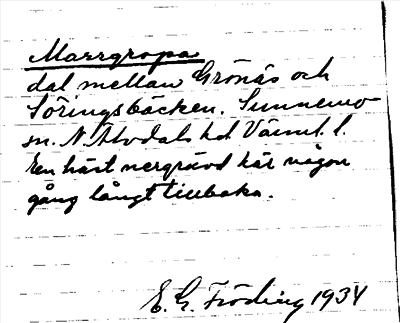 Marrgropa
dal mellan Grönås och
Söringsbäcken. Sunnemo
sn. N. Älvdals hd Värml. l.
En häst nergrävd här någon
gång långt tillbaka.
E. G. Fröding 1934